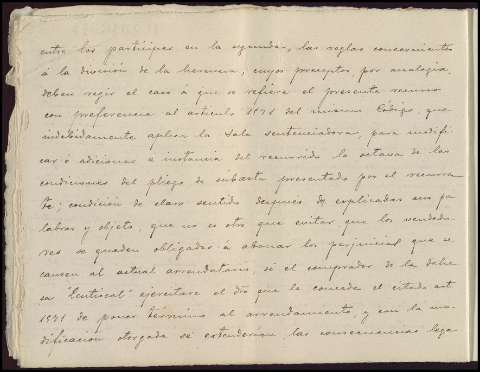 entre los partícipes en la segunda, las reglas concernientes
á la división de la herencia, cuyos preceptos, por analogía,
deben regir el caso á que se refiere el presente recurso
con preferencia al artículo 1571 del mismo Código, que
indebidamente aplica la Sala sentenciadora, para modifi-
car ó adicionar a instancia del recurrido la octava de las
condiciones del pliego de subasta presentado por el recurren
te; condición de claro sentido después de explicadas sus pa
labras y objeto, que no es otro que evitar que los vendedo
res se queden obligados á abonar los perjuicios que se
causen al actual arrendatario, si el comprador de la dehe
sa "Lentiscal" ejercitare el dro que le concede el citado art
1571 de poner término al arrendamiento, y con la mo
dificación otorgada se extenderían las consecuencias lega